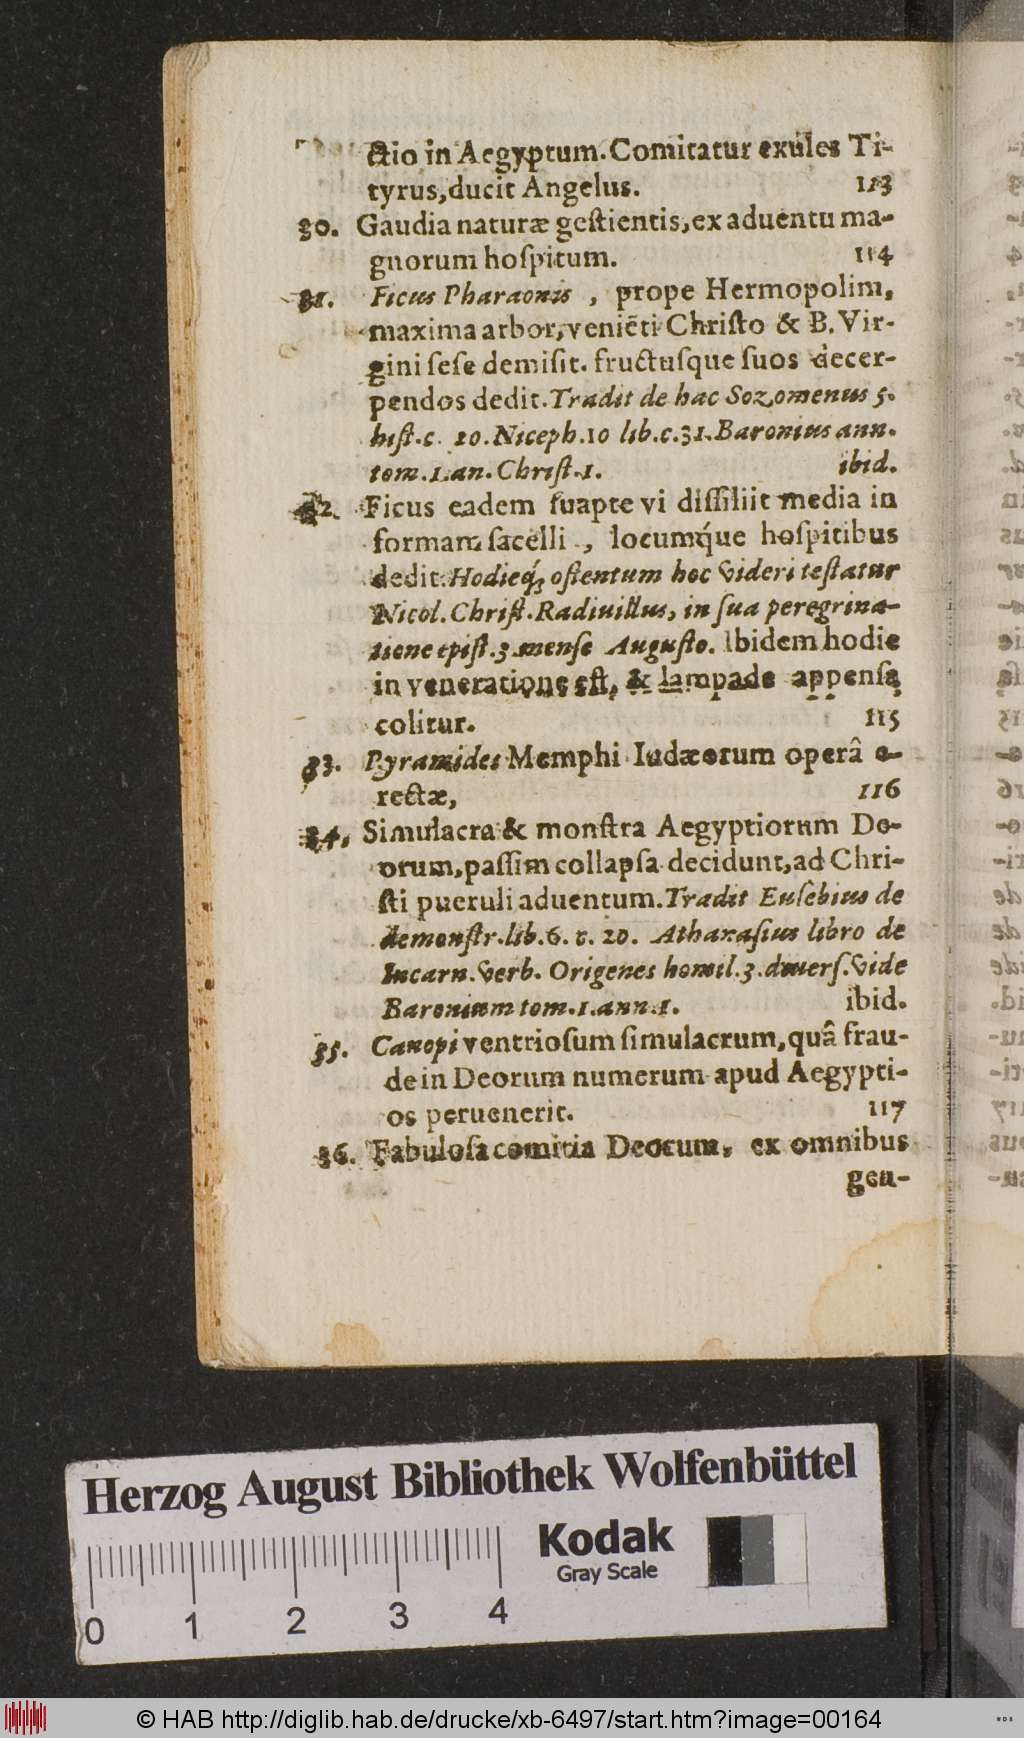 ctio in Aegyptum. Comitatur exules Ti-
tyrus, ducit Angelus. 113
30. Gaudia naturæ geſtientis, ex aduentu ma-
gnorum hoſpitum. 114
31. Ficus Pharaonis , prope Hermopolim,
maxima arbor, veniẽti Chriſto & B. Vir-
gini ſeſe demiſit. fructuſque ſuos decer-
pendos dedit. Tradit de hac Sozomenus 5.
hiſt. c. 20. Niceph. 10 lib. c. 31. Baronius ann.
tom. 1. an. Chriſt. 1. ibid.
32. Ficus eadem ſuapte vi diſſiliit media in
formam ſacelli , locumq́ue hoſpitibus
dedit. Hodieq́; oſtentum hoc videri teſtatur
Nicol. Chriſt. Radiuillus, in ſua peregrina-
tione epiſt. 3. menſe Auguſto. Ibidem hodie
in veneratione eſt, & lampade appenſa
colitur. 115
33. Pyramides Memphi Iudæorum operâ e-
rectæ, 116
34. Simulacra & monſtra Aegyptiorum De-
orum, paſſim collapſa decidunt, ad Chri-
ſti pueruli aduentum. Tradit Euſebius de
demonſtr. lib. 6. c. 20. Athanaſius libro de
Incarn. Verb. Origenes homil. 3. diuerſ. Vide
Baronium tom. 1. ann. 1. ibid.
35. Canopi ventrioſum ſimulacrum, quâ frau-
de in Deorum numerum apud Aegypti-
os peruenerit. 117
36. Fabuloſa comitia Deorum, ex omnibus
gen-
Herzog August Bibliothek Wolfenbüttel
Kodak
Gray Scale
0 1 2 3 4
© HAB http://diglib.hab.de/drucke/xb-6497/start.htm?image=00164